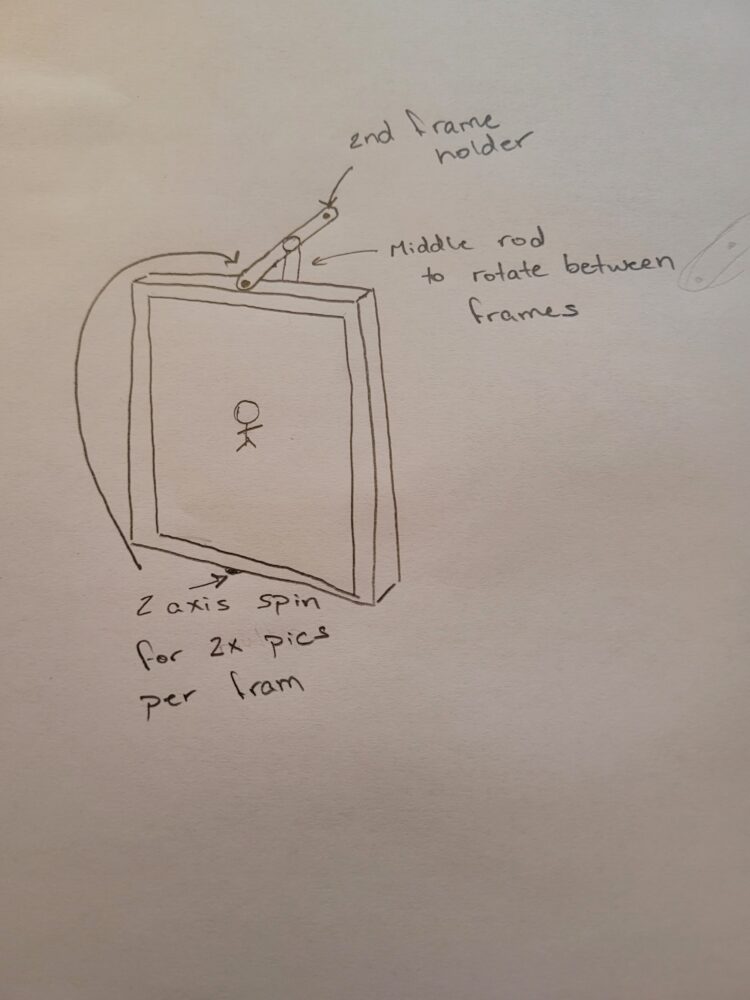 2nd frame
holder
Middle rod
to rotate between
frames
Z axis spin
for 2x pics
per fram